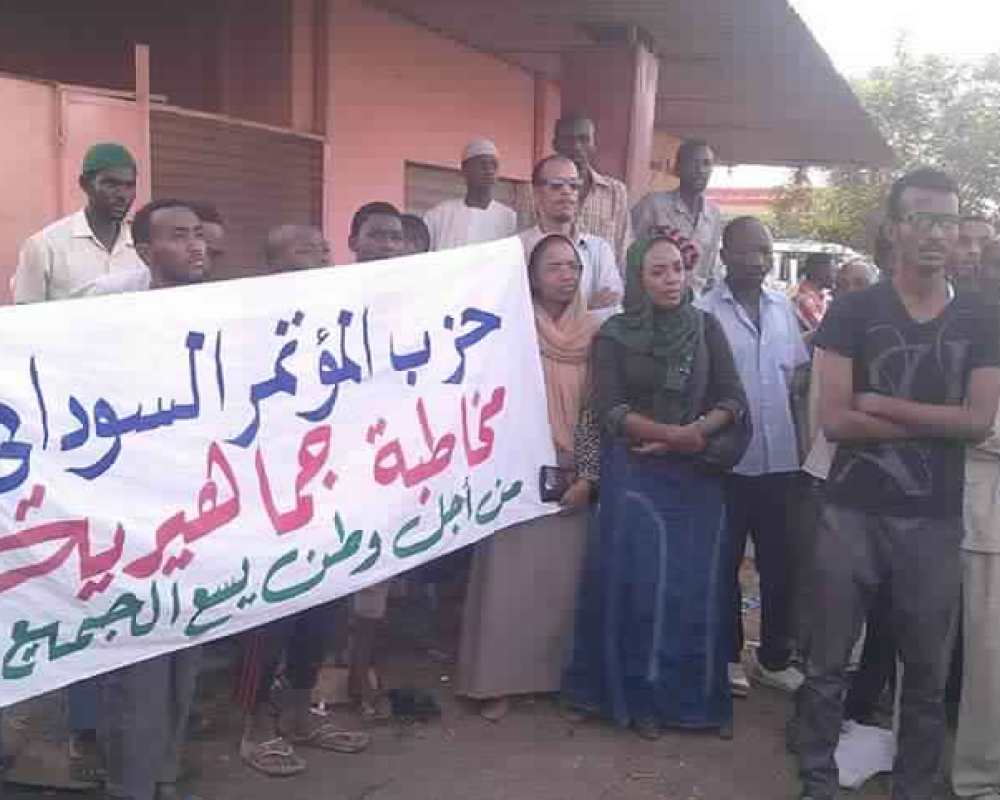 حزب المؤتمر السوداني
مخاطبة جماهيرية
من أجل وطن يسع الجميع